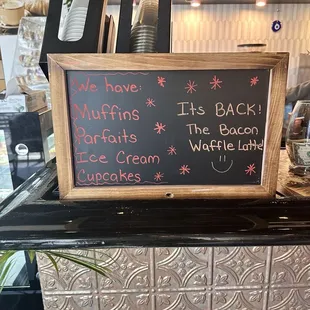 We have:
Muffins
Parfaits
Ice Cream
Cupcakes
Its BACK!
The Bacon
Waffle Latte!